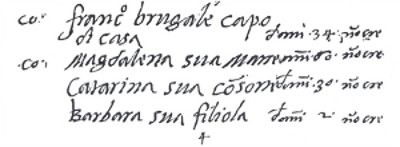 co: franco brugale capo
di casa d'anni 34 no cre
co: Magdalena sua mare anni 60 no cre
Catarina sua cōsorte d'anni 30 no cre
Barbara sua filiola d'anni 2 no cre
4